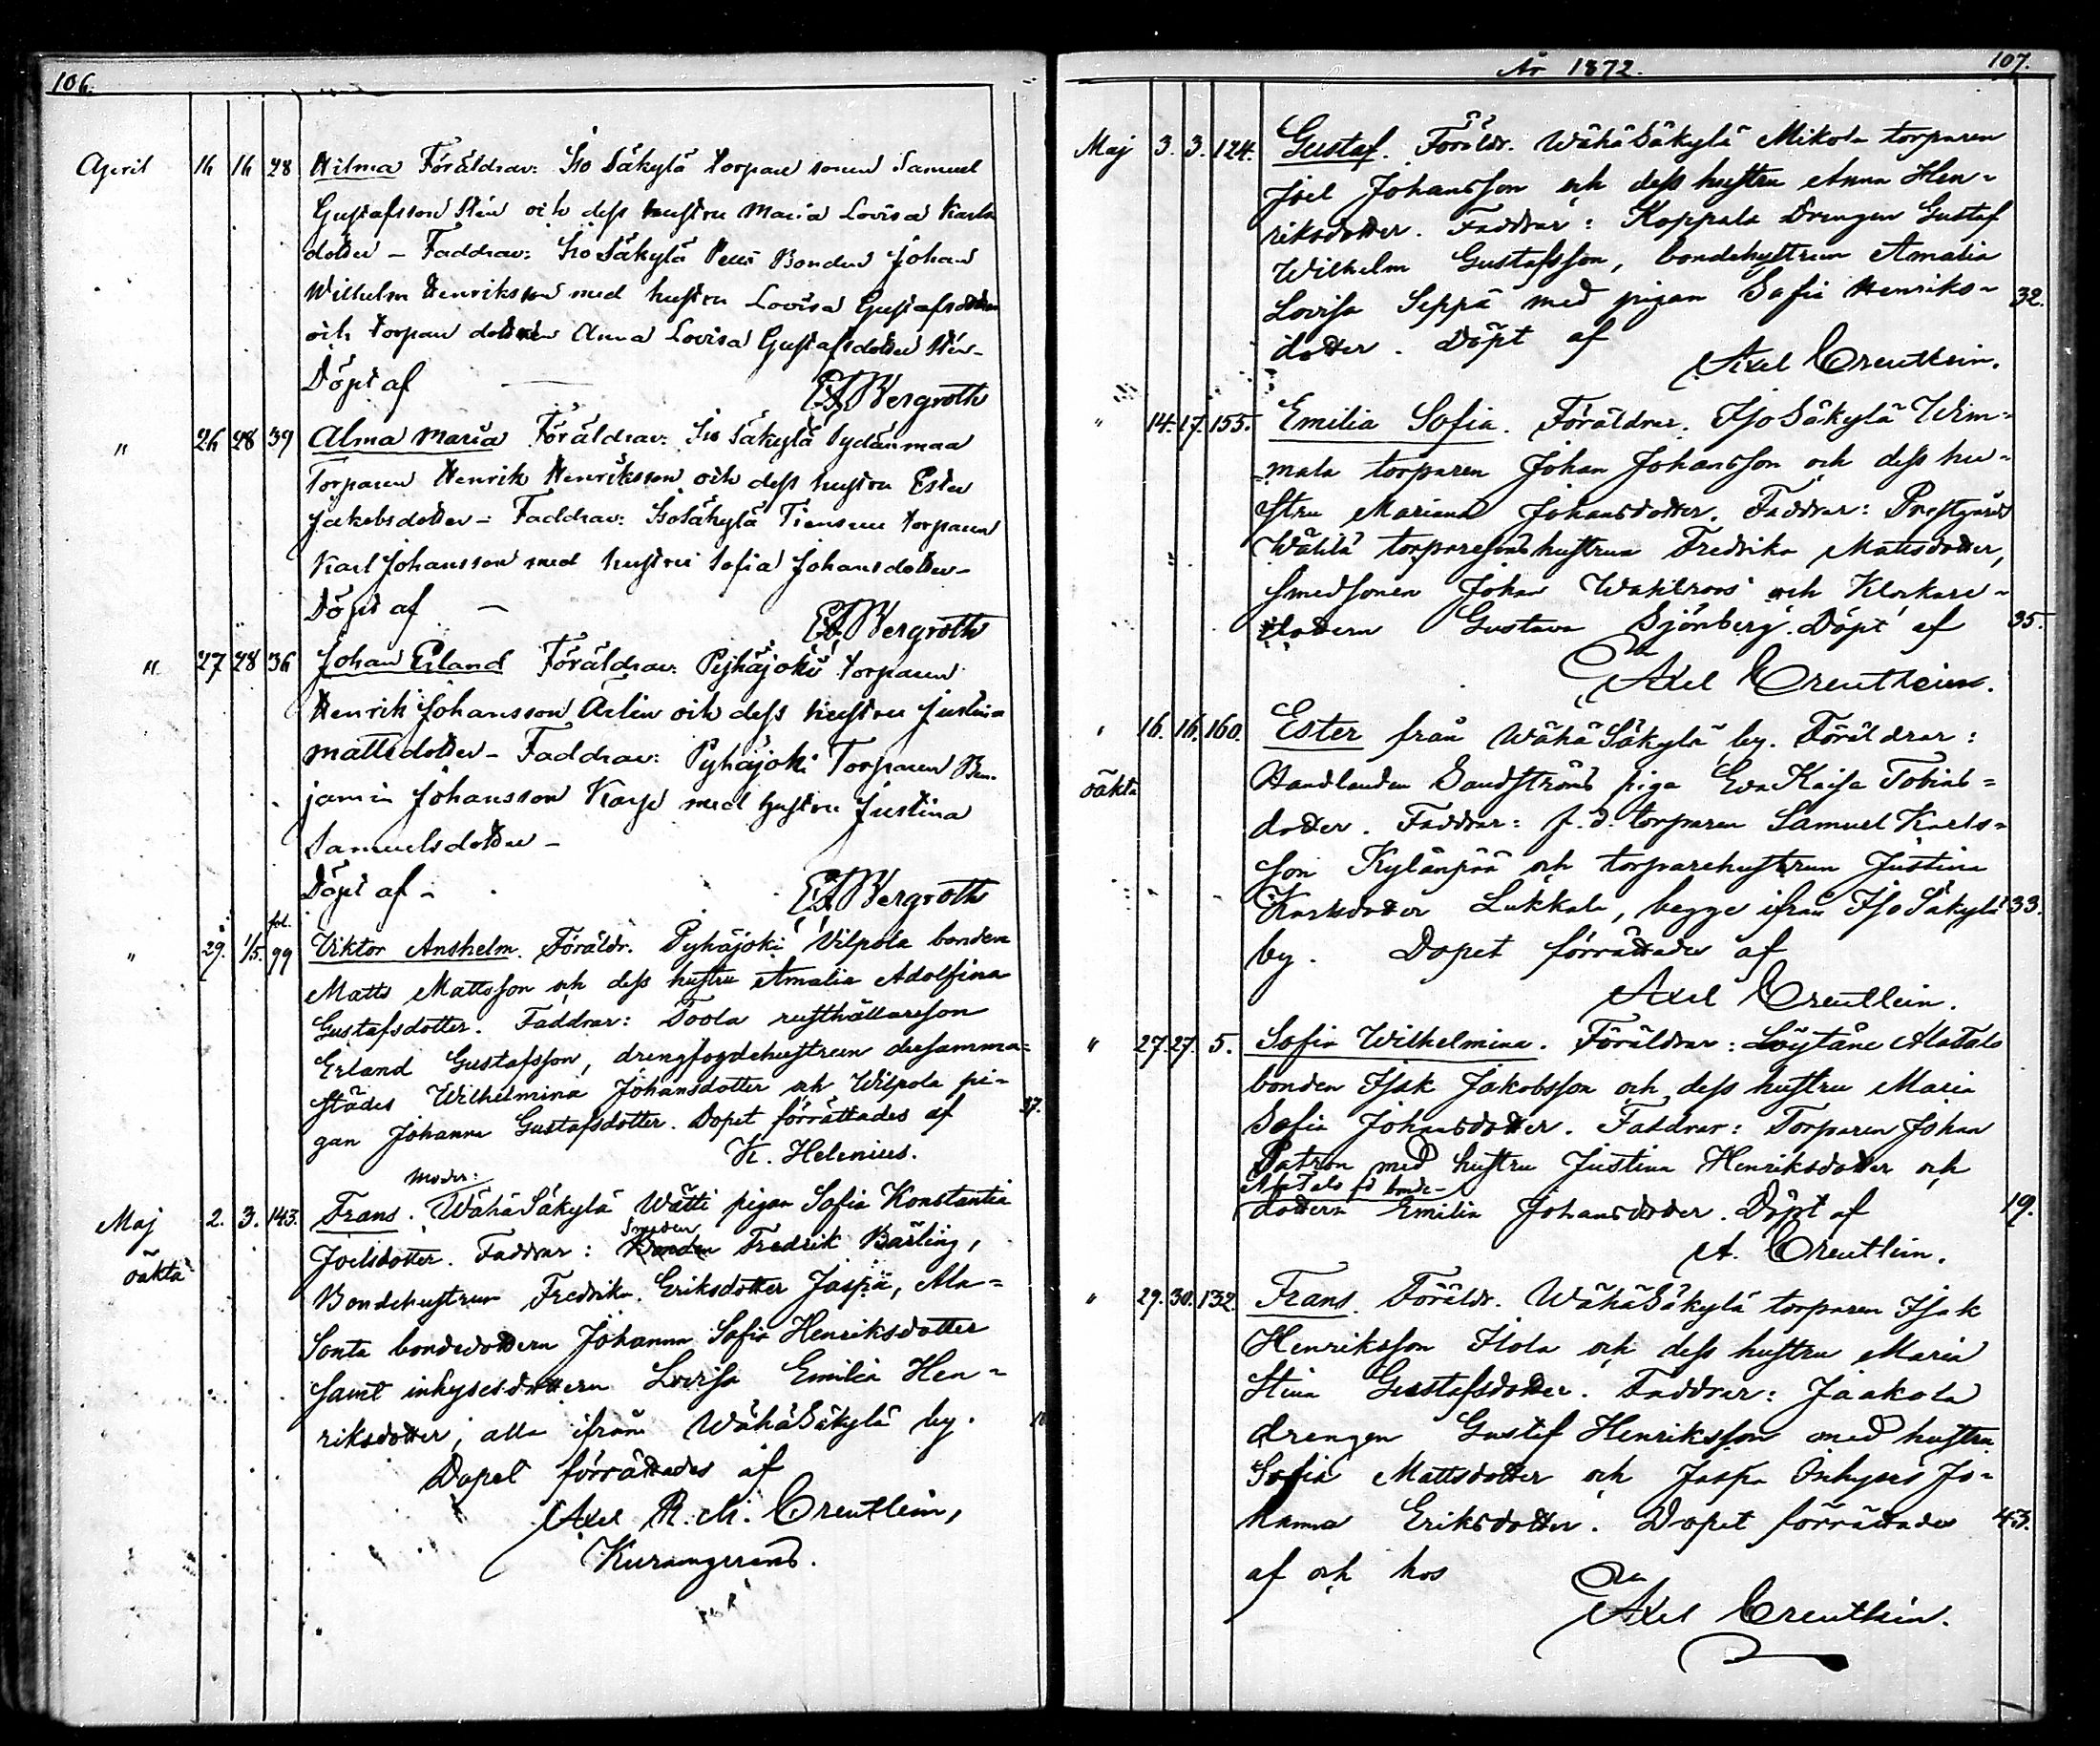 106.
April 16 16 28 Hilma Föräldrar: Iso Säkylä torpare sonen Samuel
Gustafsson Stén och dess hustru Maria Lovisa Karls
dotter – Faddrar: Iso Säkylä Bonden Johan
Wilhelm Henriksson med hustru Lovisa Gustafsdotter
och torpare dottren Anna Lovisa Gustafsdotter Stén –
Döpt af Bergroth
" 26 28 39 Alma Maria Föräldrar: Iso Säkylä Sydänmaa
Torparen Henrik Henriksson och dess hustru Ester
Jakobsdotter – Faddrar: Iso Säkylä torparen
Karl Johansson med hustru Sofia Johansdotter –
Döpt af – Bergroth
" 27 28 36 Johan Erland Föräldrar: Pyhäjoki torparen
Henrik Johansson och dess hustru Justina
Mattsdotter – Faddrar: Pyhäjoki Torparen Ben-
jamin Johansson med hustru Justina
Samuelsdotter –
Döpt af – Bergroth
fol.
" 29. 1/5. 99 Viktor Anshelm. Föräldr. Pyhäjoki Vilpola bonden
Matts Mattsson och dess hustru Amalia Adolfina
Gustafsdotter. Faddrar: Toola rusthållareson
Erland Gustafsson, drengfogdehustrun dersamma-
städes Wilhelmina Johansdotter och Wilpola pi-
gan Johanna Gustafsdotter. Dopet förrättades af 37.
K. Helenius.
Moder:
Maj 2. 3. 143. Frans. WähäSäkylä Wätti pigan Sofia Konstantia
oäkta Joelsdotter. Faddrar: Smeden Fredrik Bärling,
Bondehustrun Fredrika Eriksdotter Jaspa, Ala-
Sonta bondedottern Johanna Sofia Henriksdotter
samt inhysesdottern Lovisa Emilia Hen-
riksdotter, alla ifrån WähäSäkylä by.
Dopet förrättades af
Axel R. M. Creutlein,
År 1872. 107.
Maj 3. 3. 124. Gustaf. Föräldr. WähäSäkylä Mikola torparen
Joel Johansson och dess hustru Anna Hen-
riksdotter. Faddrar: Koppala Drengen Gustaf
Wilhelm Gustafsson, bondehustrun Amalia
Lovisa Seppä med pigan Sofia Henriks- 32.
dotter. Döpt af
Axel Creutlein.
" 14. 17. 155. Emilia Sofia. Föräldrar. IsoSäkylä Wim-
mala torparen Johan Johansson och dess hu-
stru Mariana Johansdotter. Faddrar: Prestgårds
Wälilä torparesonshustrun Fredrika Mattsdotter,
smedsonen Johan Wahlroos och Klockare-
dottern Gustava Sjönberg. Döpt af 35.
Axel Creutlein.
" 16. 16. 160. Ester från WähäSäkylä by. Föräldrar:
oäkta Handlanden Sandströms piga Eva Kaisa Tobias-
dotter. Faddrar: f.d. torparen Samuel Karls-
son Kylänpää och torparehustrun Justina
Karlsdotter Lukkala, begge ifrån IsoSäkylä 33.
by. Dopet förrättades af
Axel Creutlein.
" 27. 27. 5. Sofia Wilhelmina. Föräldrar: Löytäne AlaTalo
bonden Isak Jakobsson och dess hustru Maria
Sofia Johansdotter. Faddrar: Torparen Johan
Patron med hustru Justina Henriksdotter och
AlaTalo fd bonde-
dottern Emilia Johansdotter. Döpt af 19.
A. Creutlein.
" 29. 30. 132. Frans. Föräldr. WähäSäkylä torparen Isak
Henriksson Ilola och dess hustru Maria
Stina Gustafsdotter. Faddrar: Jaakola
drengen Gustaf Henriksson med hustru
Sofia Mattsdotter och Jaspa Inhyses Jo-
hanna Eriksdotter. Dopet förrättades 43.
af och hos
Axel Creutlein.